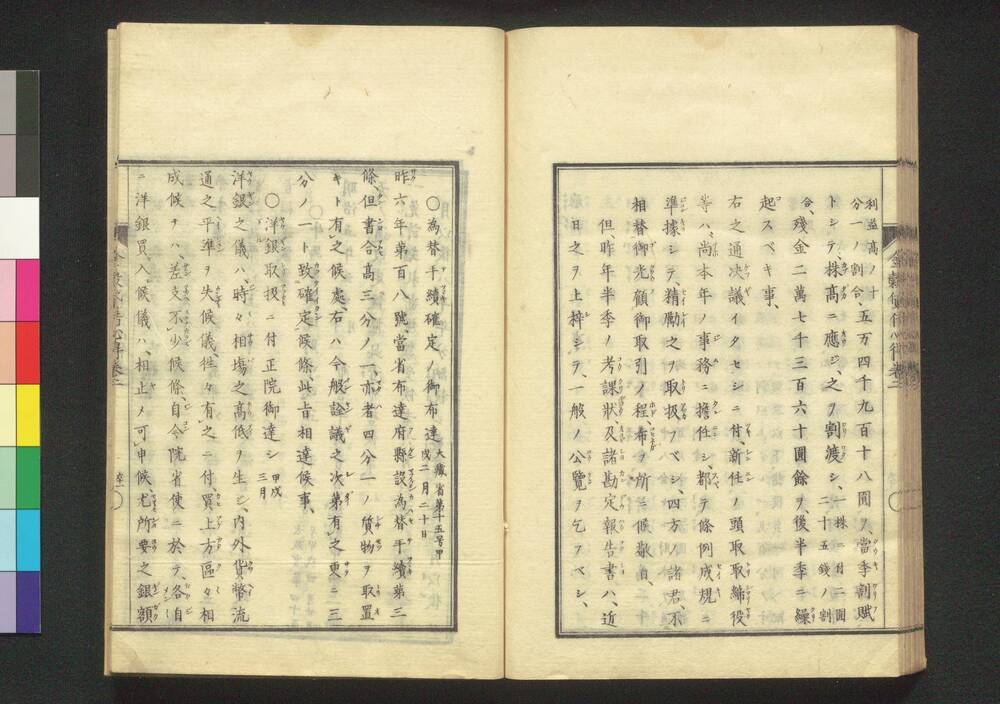 利益高ノ十五万四千九百十八圓ヲ當季割賦
分一ノ割合、
トシテ株高ニ應シ、之ヲ割渡シ、一株ニ付二圓
二十五錢ノ割
合、殘金二萬七千三百六十圓餘ヲ、後半季ニ繰
起スベキ事、
右之通決議イタセシニ付、新任ノ頭取取締役
等ハ、尚本年ノ事務ニ擔任シ、都テ條例成規ニ
準據シテ、精勵之ヲ取扱フベシ、四方ノ諸君、不
相替御光顧御取引ノ程、希フ所ニ候敬白、
但、昨年半季ノ考課狀及諸勘定報告書ハ、近
日之ヲ上梓シテ、一般ノ公覽ヲ乞フベシ、
〇為替手續確定ノ御布達 大藏省第十五号甲
戌二月二十日
昨六年第百八號、當省布達府縣譤為替手續第三
條、但書合高三分ノ一、亦者四分一ノ質物ヲ取置
キト有之候處、右ハ今般詮議之次第有之更ニ三
分ノ一ト致確定候條、此旨相達候事、
〇洋銀取扱ニ付正院御達シ 甲戌
三月
洋銀之儀ハ、時々相塲之高低ヲ生シ、内外貨幣流
通之平準ヲ失候儀、往々有之ニ付、買上方區々相
成候ヲハ、差支不少候條、自今院省使ニ於テ、各自
ニ洋銀買入候儀ハ、相止ノ可申候尤所要之銀額